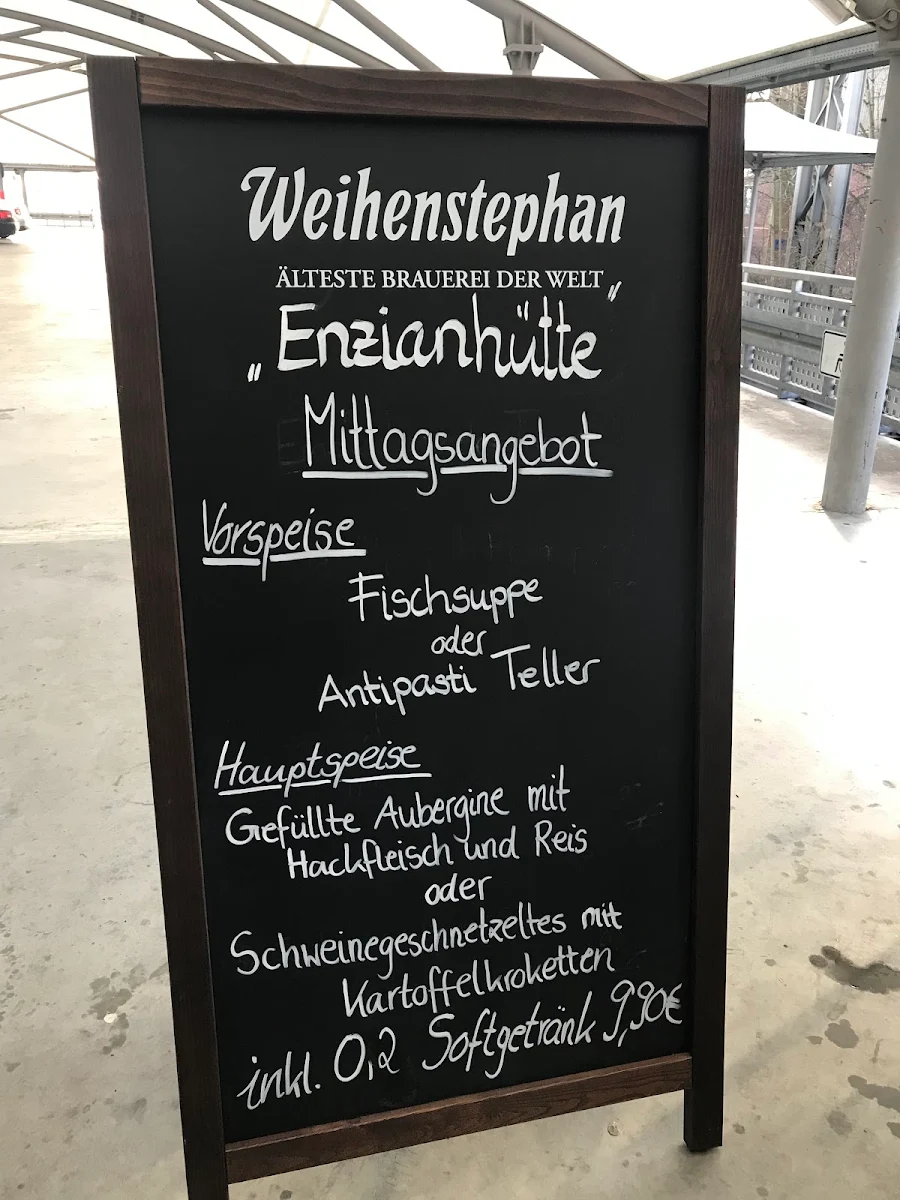 Weihenstephan
ÄLTESTE BRAUEREI DER WELT
„Enzianhütte"
Mittagsangebot
Vorspeise
Fischsuppe
oder
Antipasti Teller
Hauptspeise
Gefüllte Aubergine mit
Hackfleisch und Reis
oder
Schweinegeschnetzeltes mit
Kartoffelkroketten
inkl. 0,2 Softgetränk 9,90€